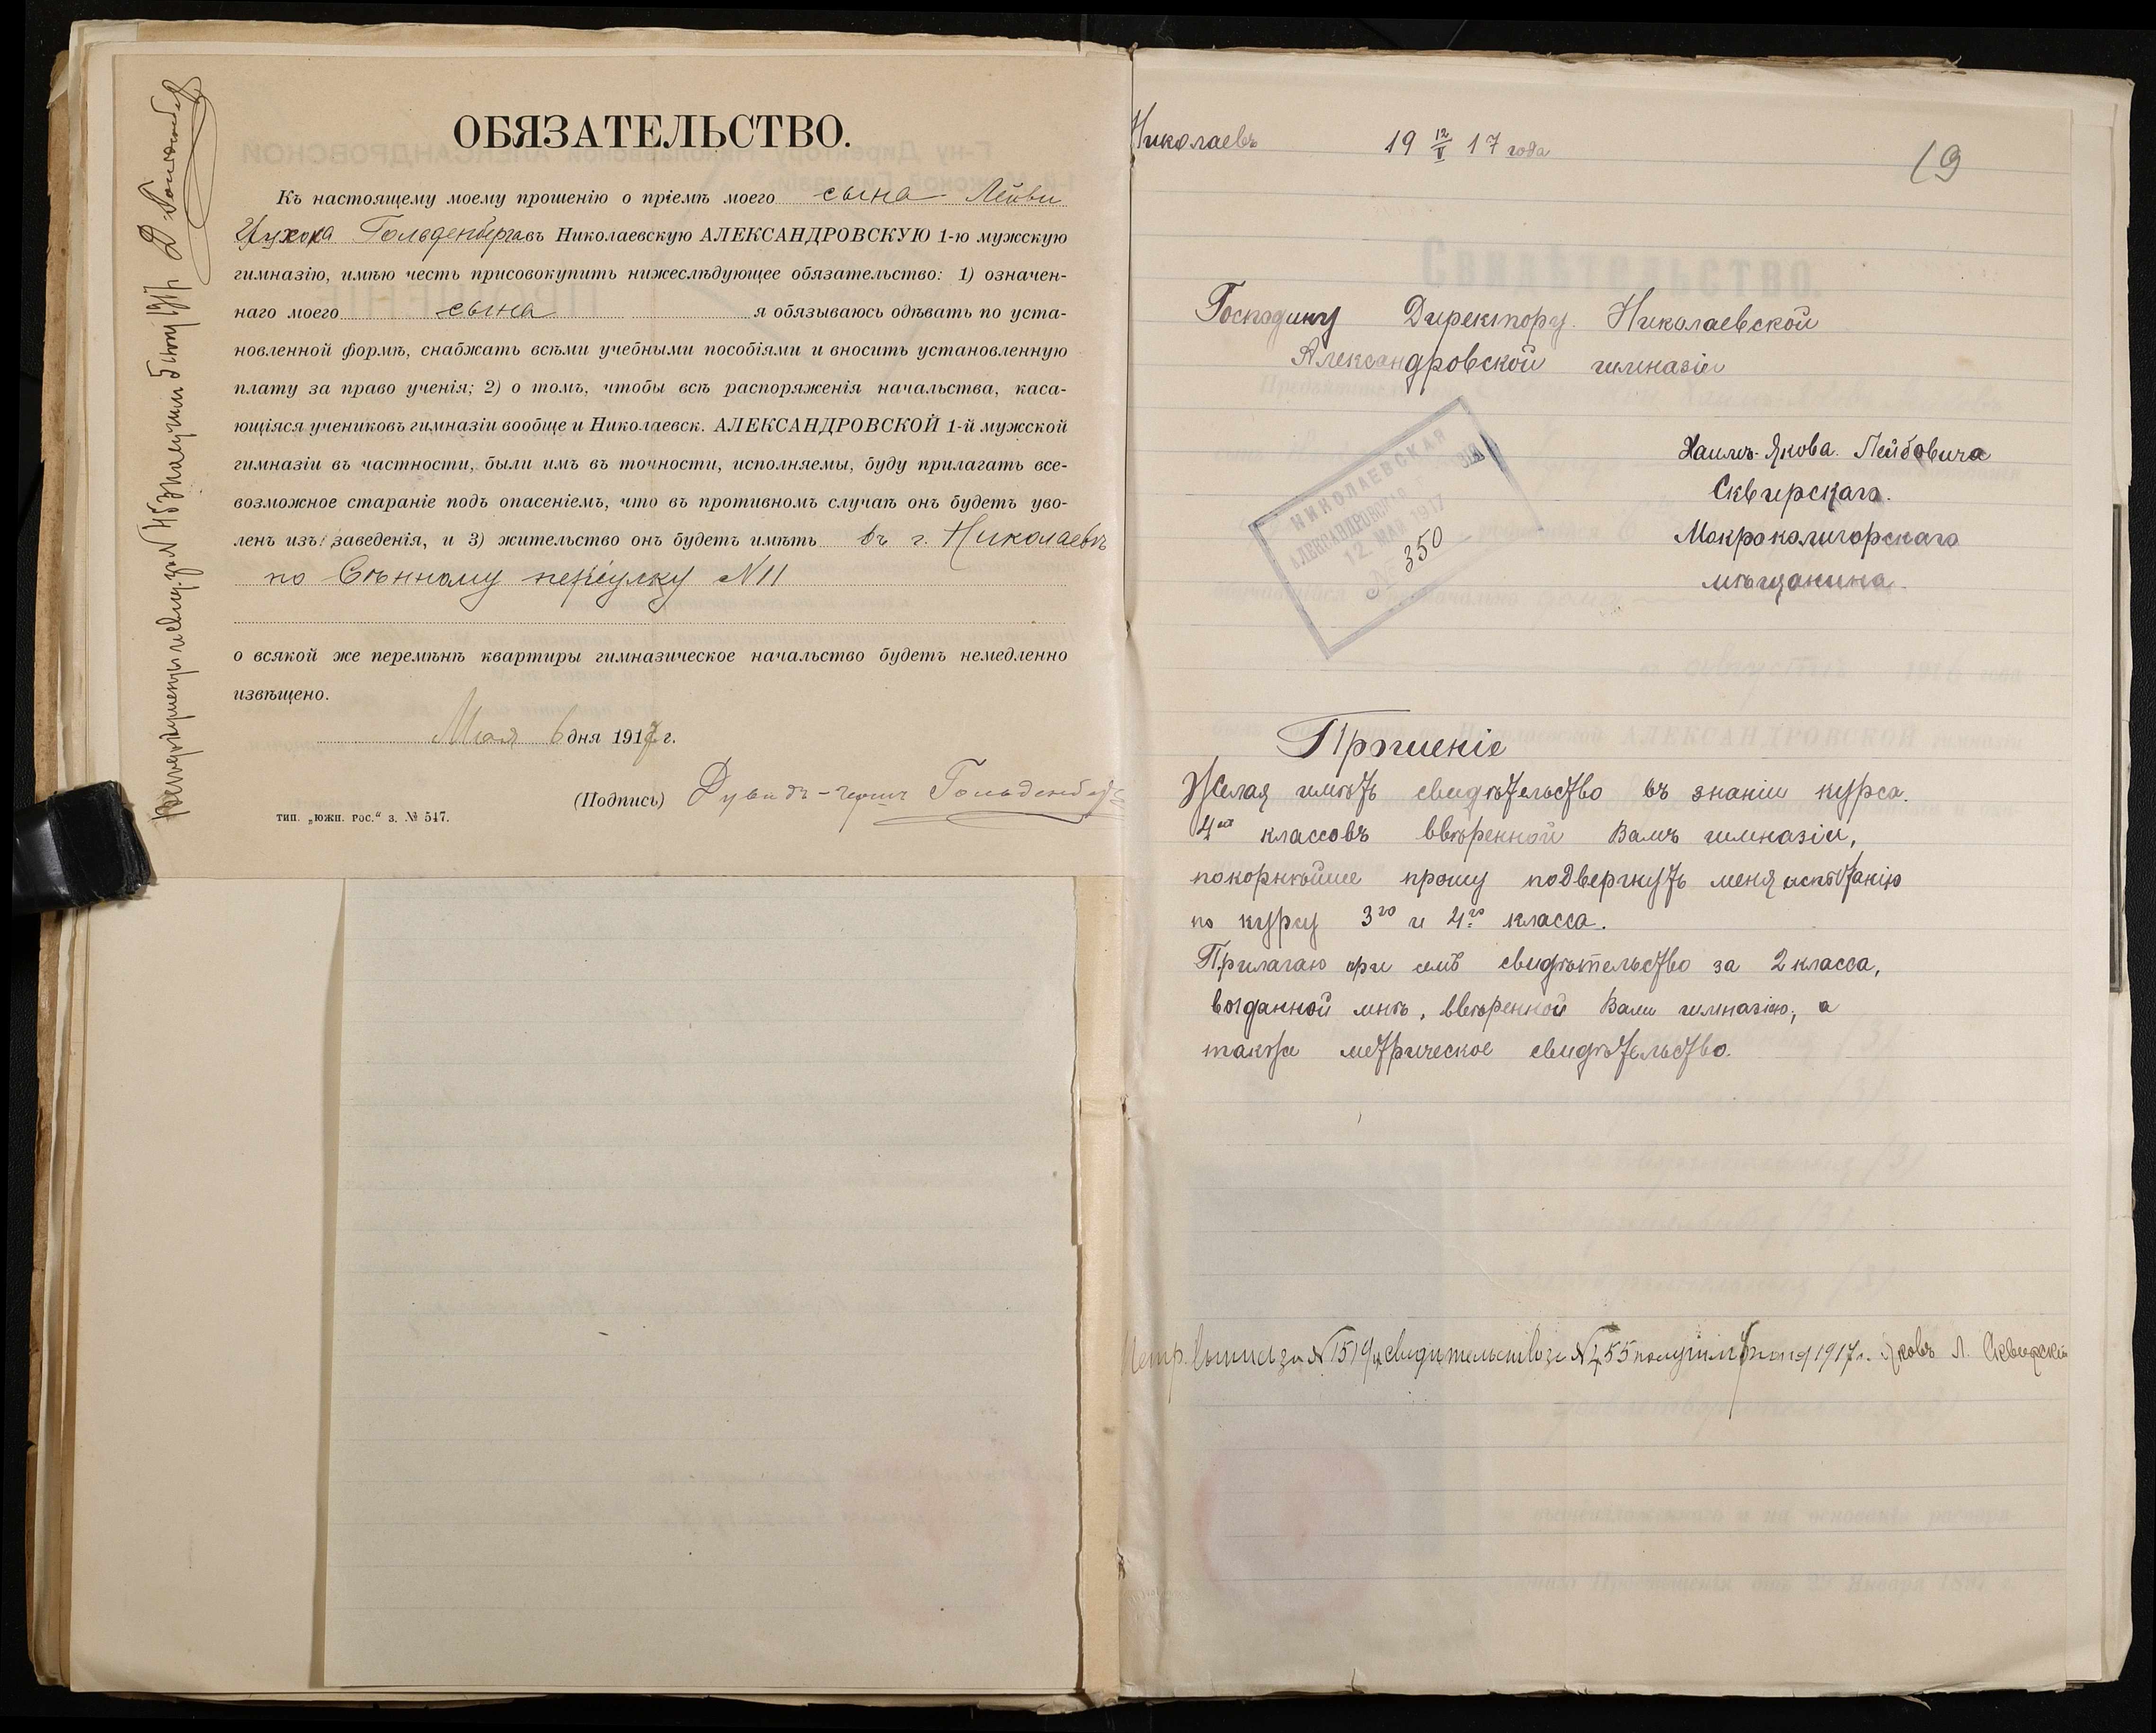 ОБЯЗАТЕЛЬСТВО.
Къ настоящему моему прошенію о пріемѣ моего сына Лейви
Ицхока Гольденберга въ Николаевскую АЛЕКСАНДРОВСКУЮ 1-ю мужскую
гимназію, имѣю честь присовокупить нижеслѣдующее обязательство: 1) означен-
наго моего сына я обязываюсь одѣвать по уста-
новленной формѣ, снабжать всѣми учебными пособіями и вносить установленную
плату за право ученія; 2) о томъ, чтобы всѣ распоряженія начальства, каса-
ющіяся учениковъ гимназіи вообще и Николаевск. АЛЕКСАНДРОВСКОЙ 1-й мужской
гимназіи въ частности, были имъ въ точности, исполняемы, буду прилагать все-
возможное стараніе подъ опасеніемъ, что въ противномъ случаѣ онъ будетъ уво-
ленъ изъ заведенія, и 3) жительство онъ будетъ имѣть въ г. Николаевѣ
по Сѣнному переулку N 11
о всякой же перемѣнѣ квартиры гимназическое начальство будетъ немедленно
извѣщено.
Мая 6 дня 1917 г.
(Подпись) Дувидъ-Герш Гольденберг
тип. „южн. рос.“ з. № 547.
документы и свид. за № 456 получил 5 июня 1917 г.
Николаевъ 19 12/V 17 года
19
Господину Директору Николаевской
Александровской гимназіи
НИКОЛАЕВСКАЯ
АЛЕКСАНДРОВСКАЯ
12. МАЯ 1917
№ 350
Хаимъ-Якова Лейбовича
Сквирскаго.
Мокрокалигорскаго
мѣщанина.
Прошеніе
Желая имѣть свидѣтельство въ знаніи курса
4ехъ классовъ ввѣренной Вамъ гимназіи,
покорнѣйше прошу подвергнуть меня испытанію
по курсу 3го и 4го класса.
Прилагаю при семъ свидѣтельство за 2 класса,
выданной мнѣ, ввѣренной Вами гимназіею, а
также метрическое свидѣтельство.
Метр. выпись за № 1519 и свидѣтельство за № 455 получилъ июня 1917 г. Яковъ Л. Сквирскій